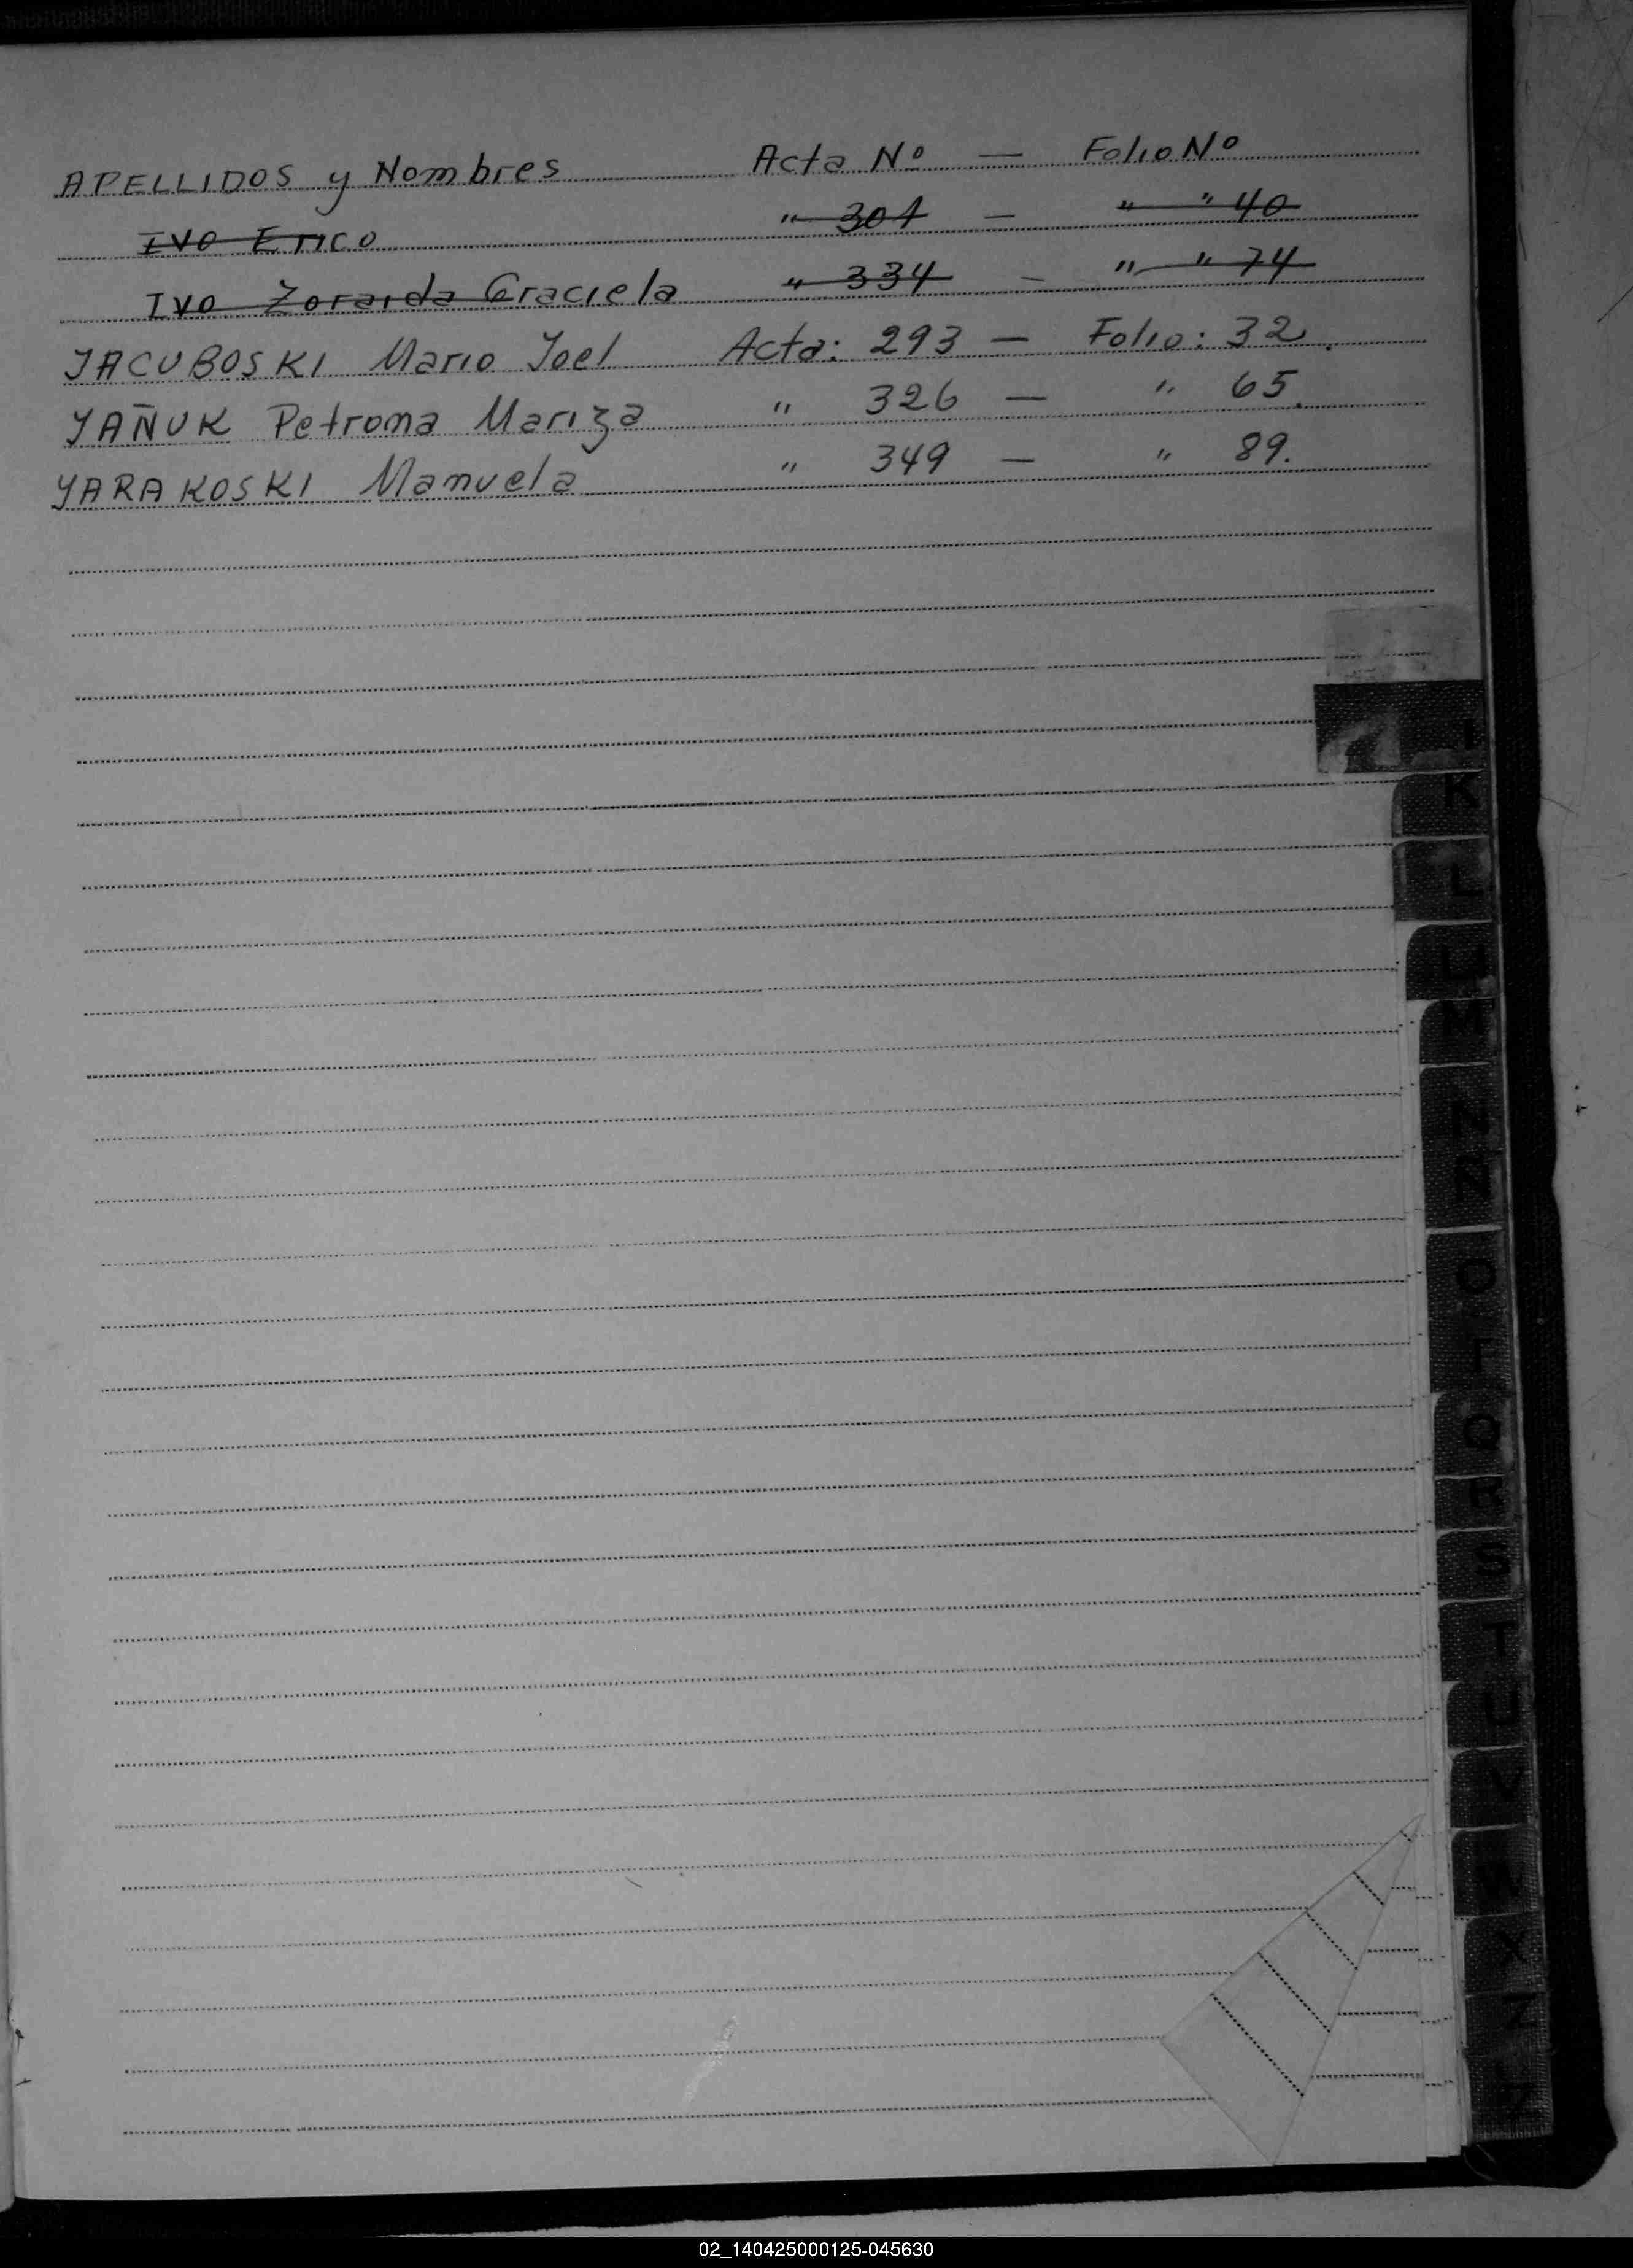 APELLIDOS y Nombres Acta Nº — Folio Nº
IVO Erico " 301 — " " 40
IVO Zoraida Graciela " 334 — " " 74
JACUBOSKI Mario Joel Acta: 293 — Folio: 32.
YAÑUK Petrona Mariza " 326 — " 65.
YARAKOSKI Manuela " 349 — " 89.
I
K
L
LL
M
N
Ñ
O
P
Q
R
S
T
U
V
W
X
Z
02_140425000125-045630